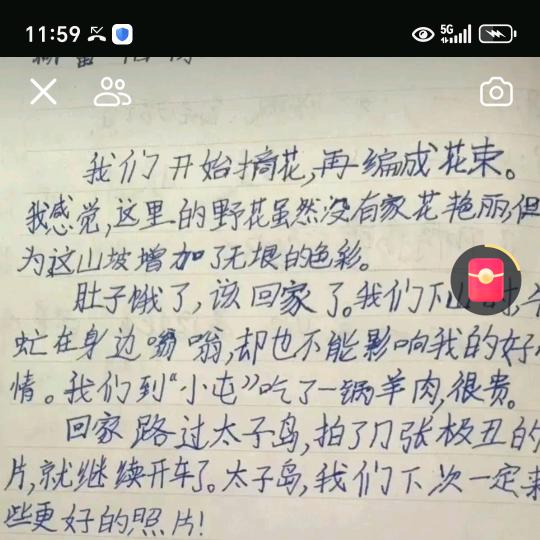 11:59
5G
我们开始摘花,再编成花束。
我感觉,这里的野花虽然没有家花艳丽,但
为这山坡增加了无垠的色彩。
肚子饿了,该回家了。我们下山
虻在身边嗡嗡,却也不能影响我的好
情。我们到“小屯”吃了一锅羊肉,很贵。
回家路过太子岛,拍了几张极丑的
片,就继续开车了。太子岛,我们下次一定来
些更好的照片!